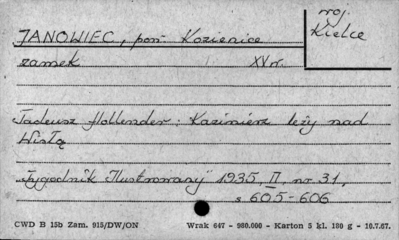 woj.
Kielce
JANOWIEC, pow. Kozienice
zamek XV w.
Tadeusz Hollender: Kazimierz leży nad
Wisłą
"Tygodnik Ilustrowany" 1935, II, nr 31,
s 605-606
CWD B 15b Zam. 915/DW/ON Wrak 647 - 980.000 - Karton 5 kl. 180 g - 10.7.67.